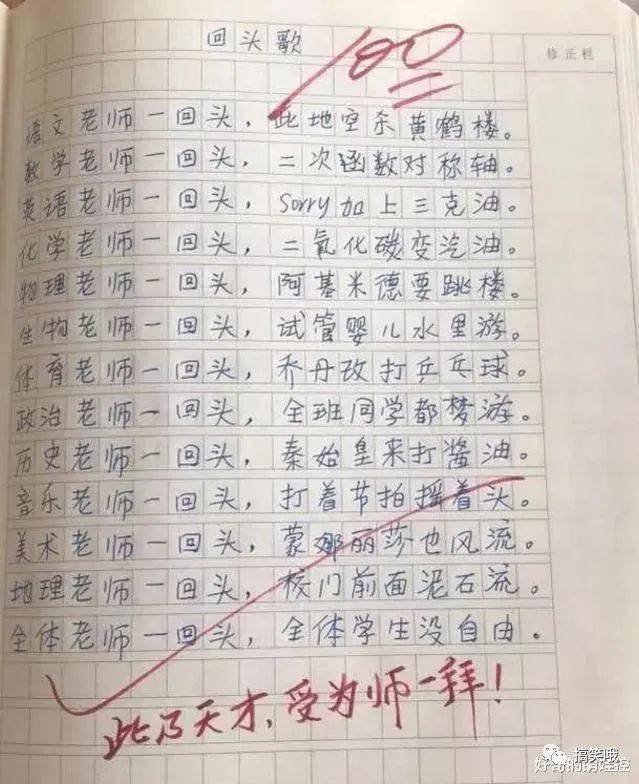 回头歌
100
修正栏
语文老师一回头，此地空余黄鹤楼。
数学老师一回头，二次函数对称轴。
英语老师一回头，Sorry加上三克油。
化学老师一回头，二氧化碳变汽油。
物理老师一回头，阿基米德要跳楼。
生物老师一回头，试管婴儿水里游。
体育老师一回头，乔丹改打乒乓球。
政治老师一回头，全班同学都梦游。
历史老师一回头，秦始皇来打酱油。
音乐老师一回头，打着节拍摇着头。
美术老师一回头，蒙娜丽莎也风流。
地理老师一回头，校门前面泥石流。
全体老师一回头，全体学生没自由。
此乃天才，受为师一拜！
搞笑哦